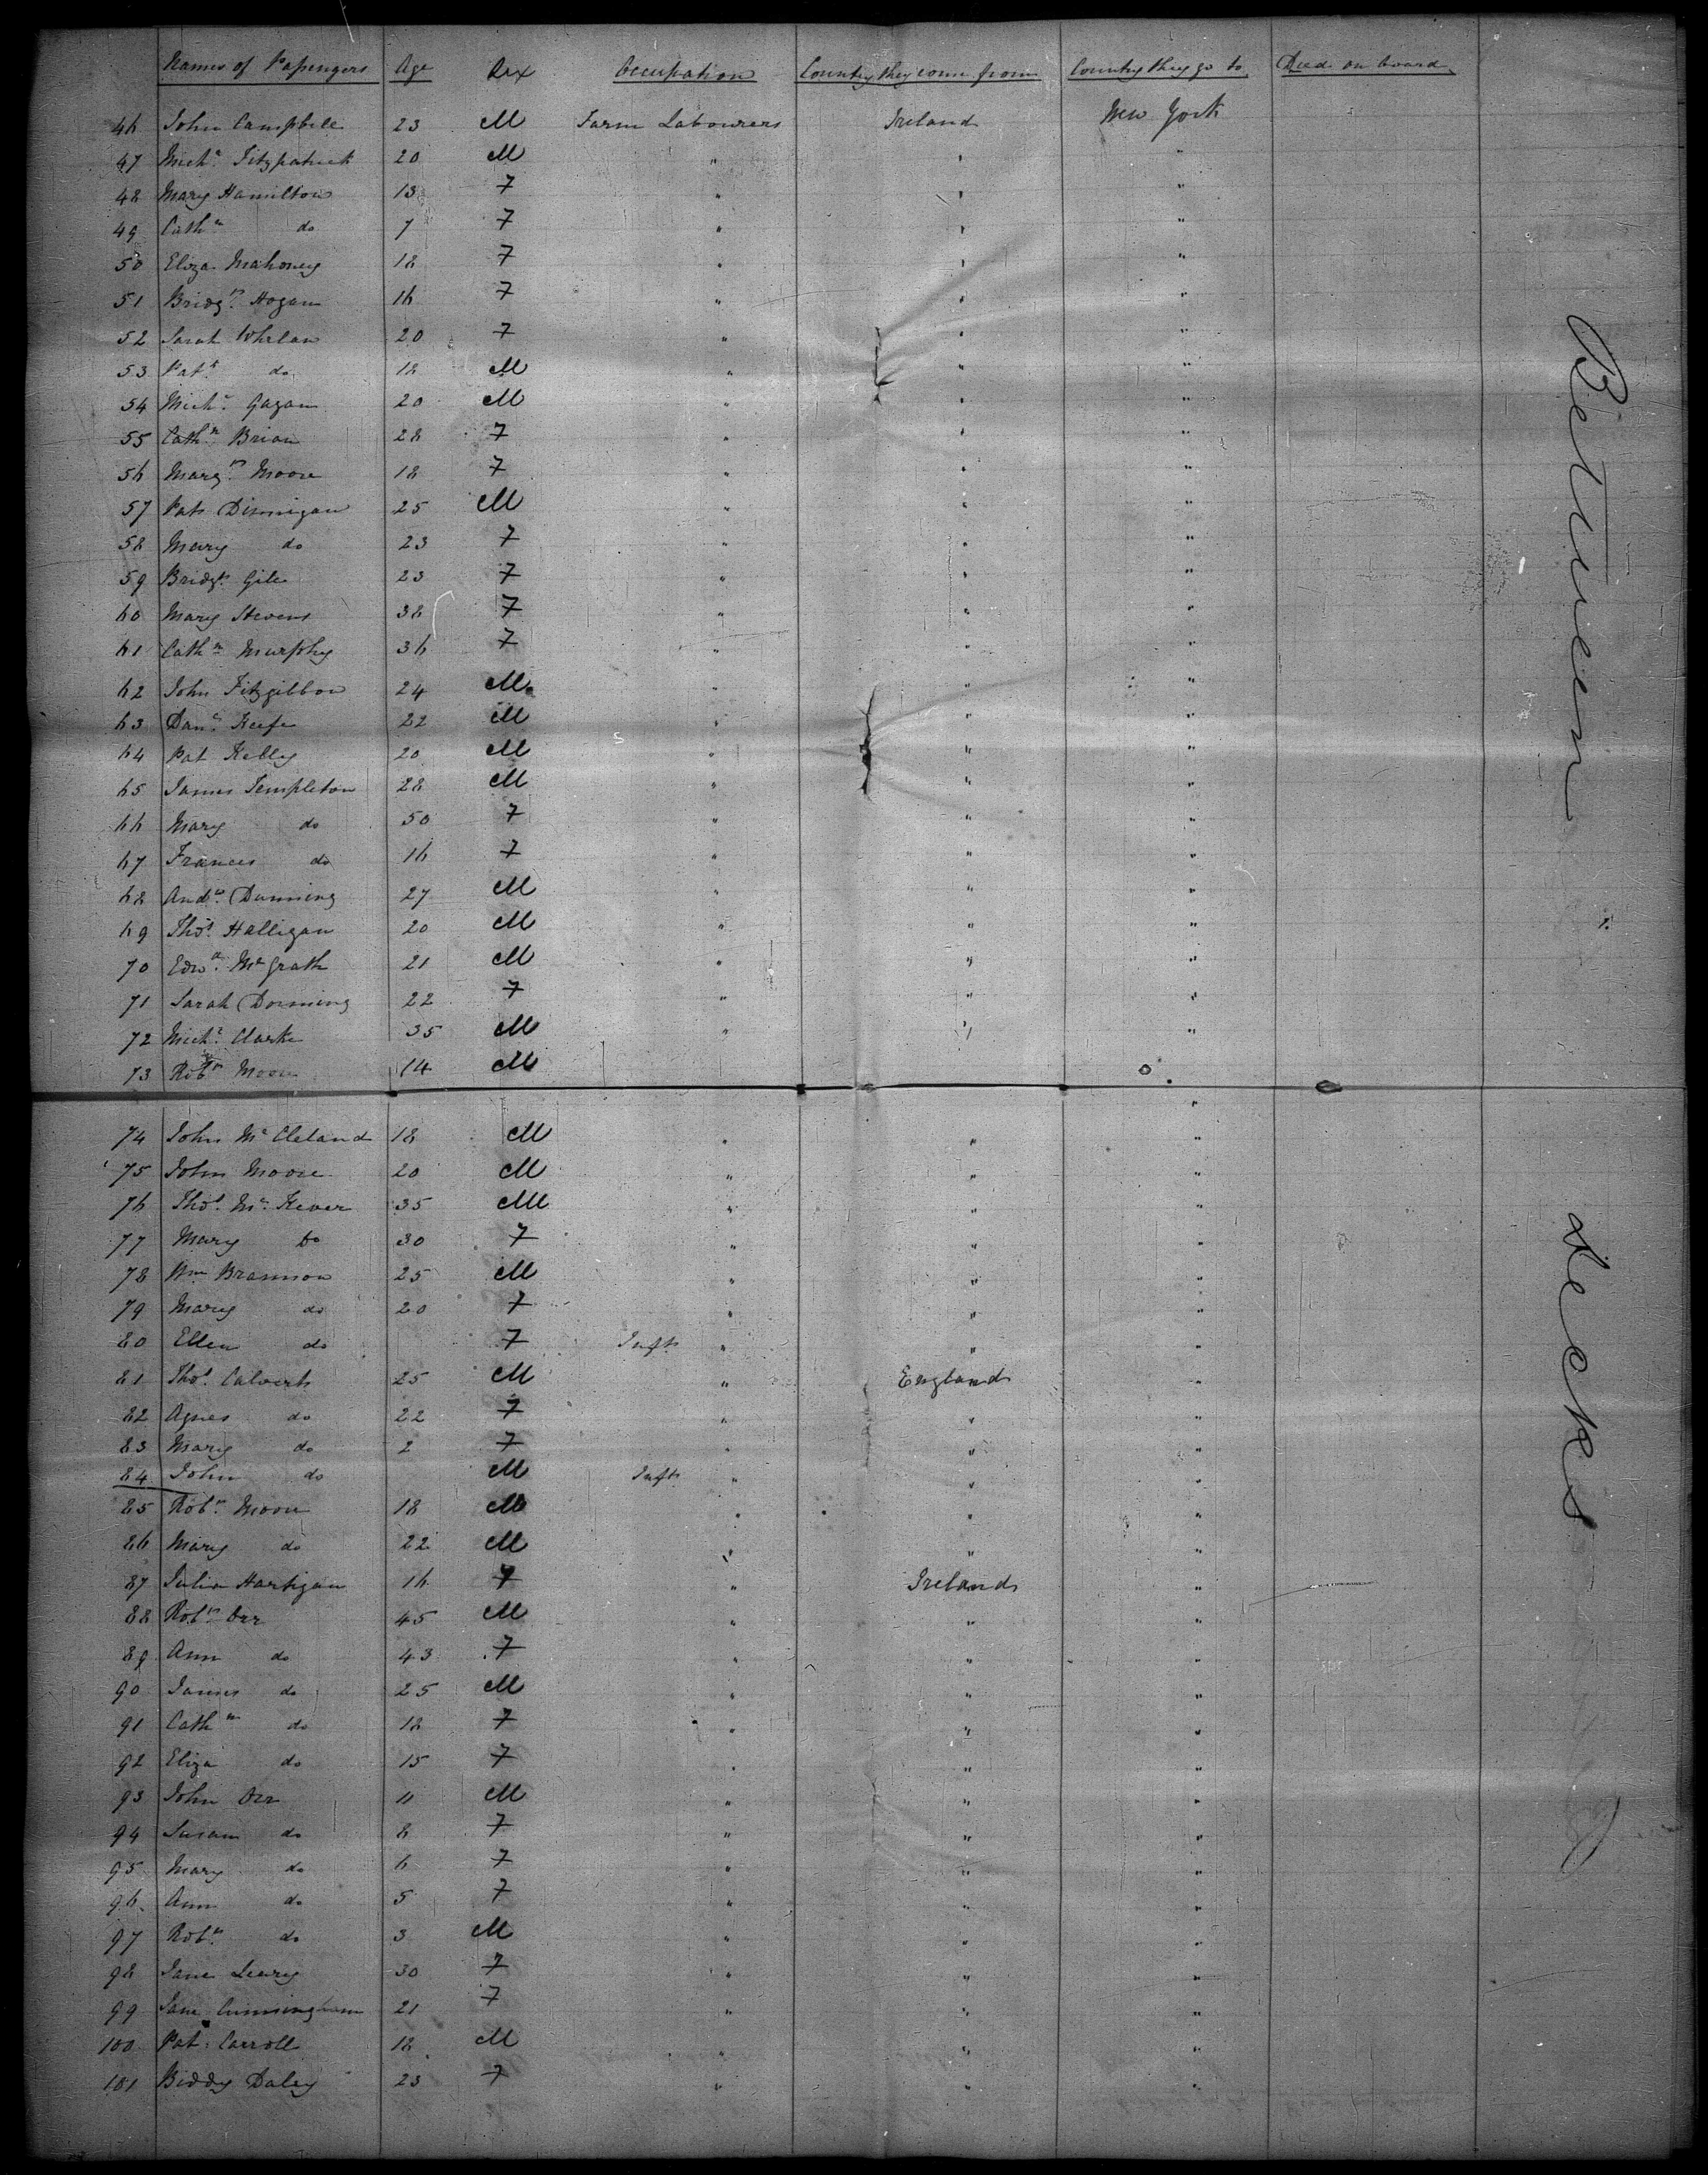 Names of Passengers Age Sex Occupation Country they come from Country they go to Died on board
46 John Campbell 23 M Farm Labourers Ireland New York
47 Michl. Fitzpatrick 20 M " " "
48 Mary Hamilton 13 F " " "
49 Cathn do 7 F " " "
50 Eliza Mahoney 18 F " " "
51 Bridgt. Hogan 16 F " " "
52 Sarah Whelan 20 F " " "
53 Patk. do 18 M " " "
54 Michl. Gagan 20 M " " "
55 Cathn Brian 28 F " " "
56 Margt. Moore 18 F " " "
57 Patk Dinnigan 25 M " " "
58 Mary do 23 F " " "
59 Bridgt. 23 F " " "
60 Mary Stevens 38 F " " "
61 Cathn Murphy 36 F " " "
62 John Fitzgibbon 24 M " " "
63 Danl. Keefe 22 M " " "
64 Pat Kelly 20 M " " "
65 James Templeton 28 M " " "
66 Mary do 50 F " " "
67 Frances do 16 F " " "
68 Andw. Dunning 27 M " " "
69 Thos. Halligan 20 M " " "
70 Edwd. McGrath 21 M " " "
71 Sarah Donning 22 F " " "
72 Michl. Clarke 35 M " " "
73 Robt Moore 14 M "
74 John McCleland 18 M " " "
75 John Moore 20 M " " "
76 Thos. McKever 35 M " " "
77 Mary Do 30 F " " "
78 Wm Brannon 25 M " " "
79 Mary do 20 F " " "
80 Ellen do F Inft " " "
81 Thos. Calvert 25 M " England "
82 Agnes do 22 F " " "
83 Mary do 2 F " " "
84 John do M Inft " " "
85 Robt. Moore 18 M " " "
86 Mary do 22 M " " "
87 Julia Hartigan 16 F " Ireland "
88 Robt Orr 45 M " " "
89 Ann do 43 F " " "
90 James do 25 M " " "
91 Cathn do 18 F " " "
92 Eliza do 15 F " " "
93 John Orr 11 M " " "
94 Susan do 8 F " " "
95 Mary do 6 F " " "
96 Ann do 5 F " " "
97 Robt. do 3 M " " "
98 Jane Leery 30 F " " "
99 Jane Cunningham 21 F " " "
100 Pat. Carroll 18 M " " "
101 Biddy Daley 23 F " " "
Between decks